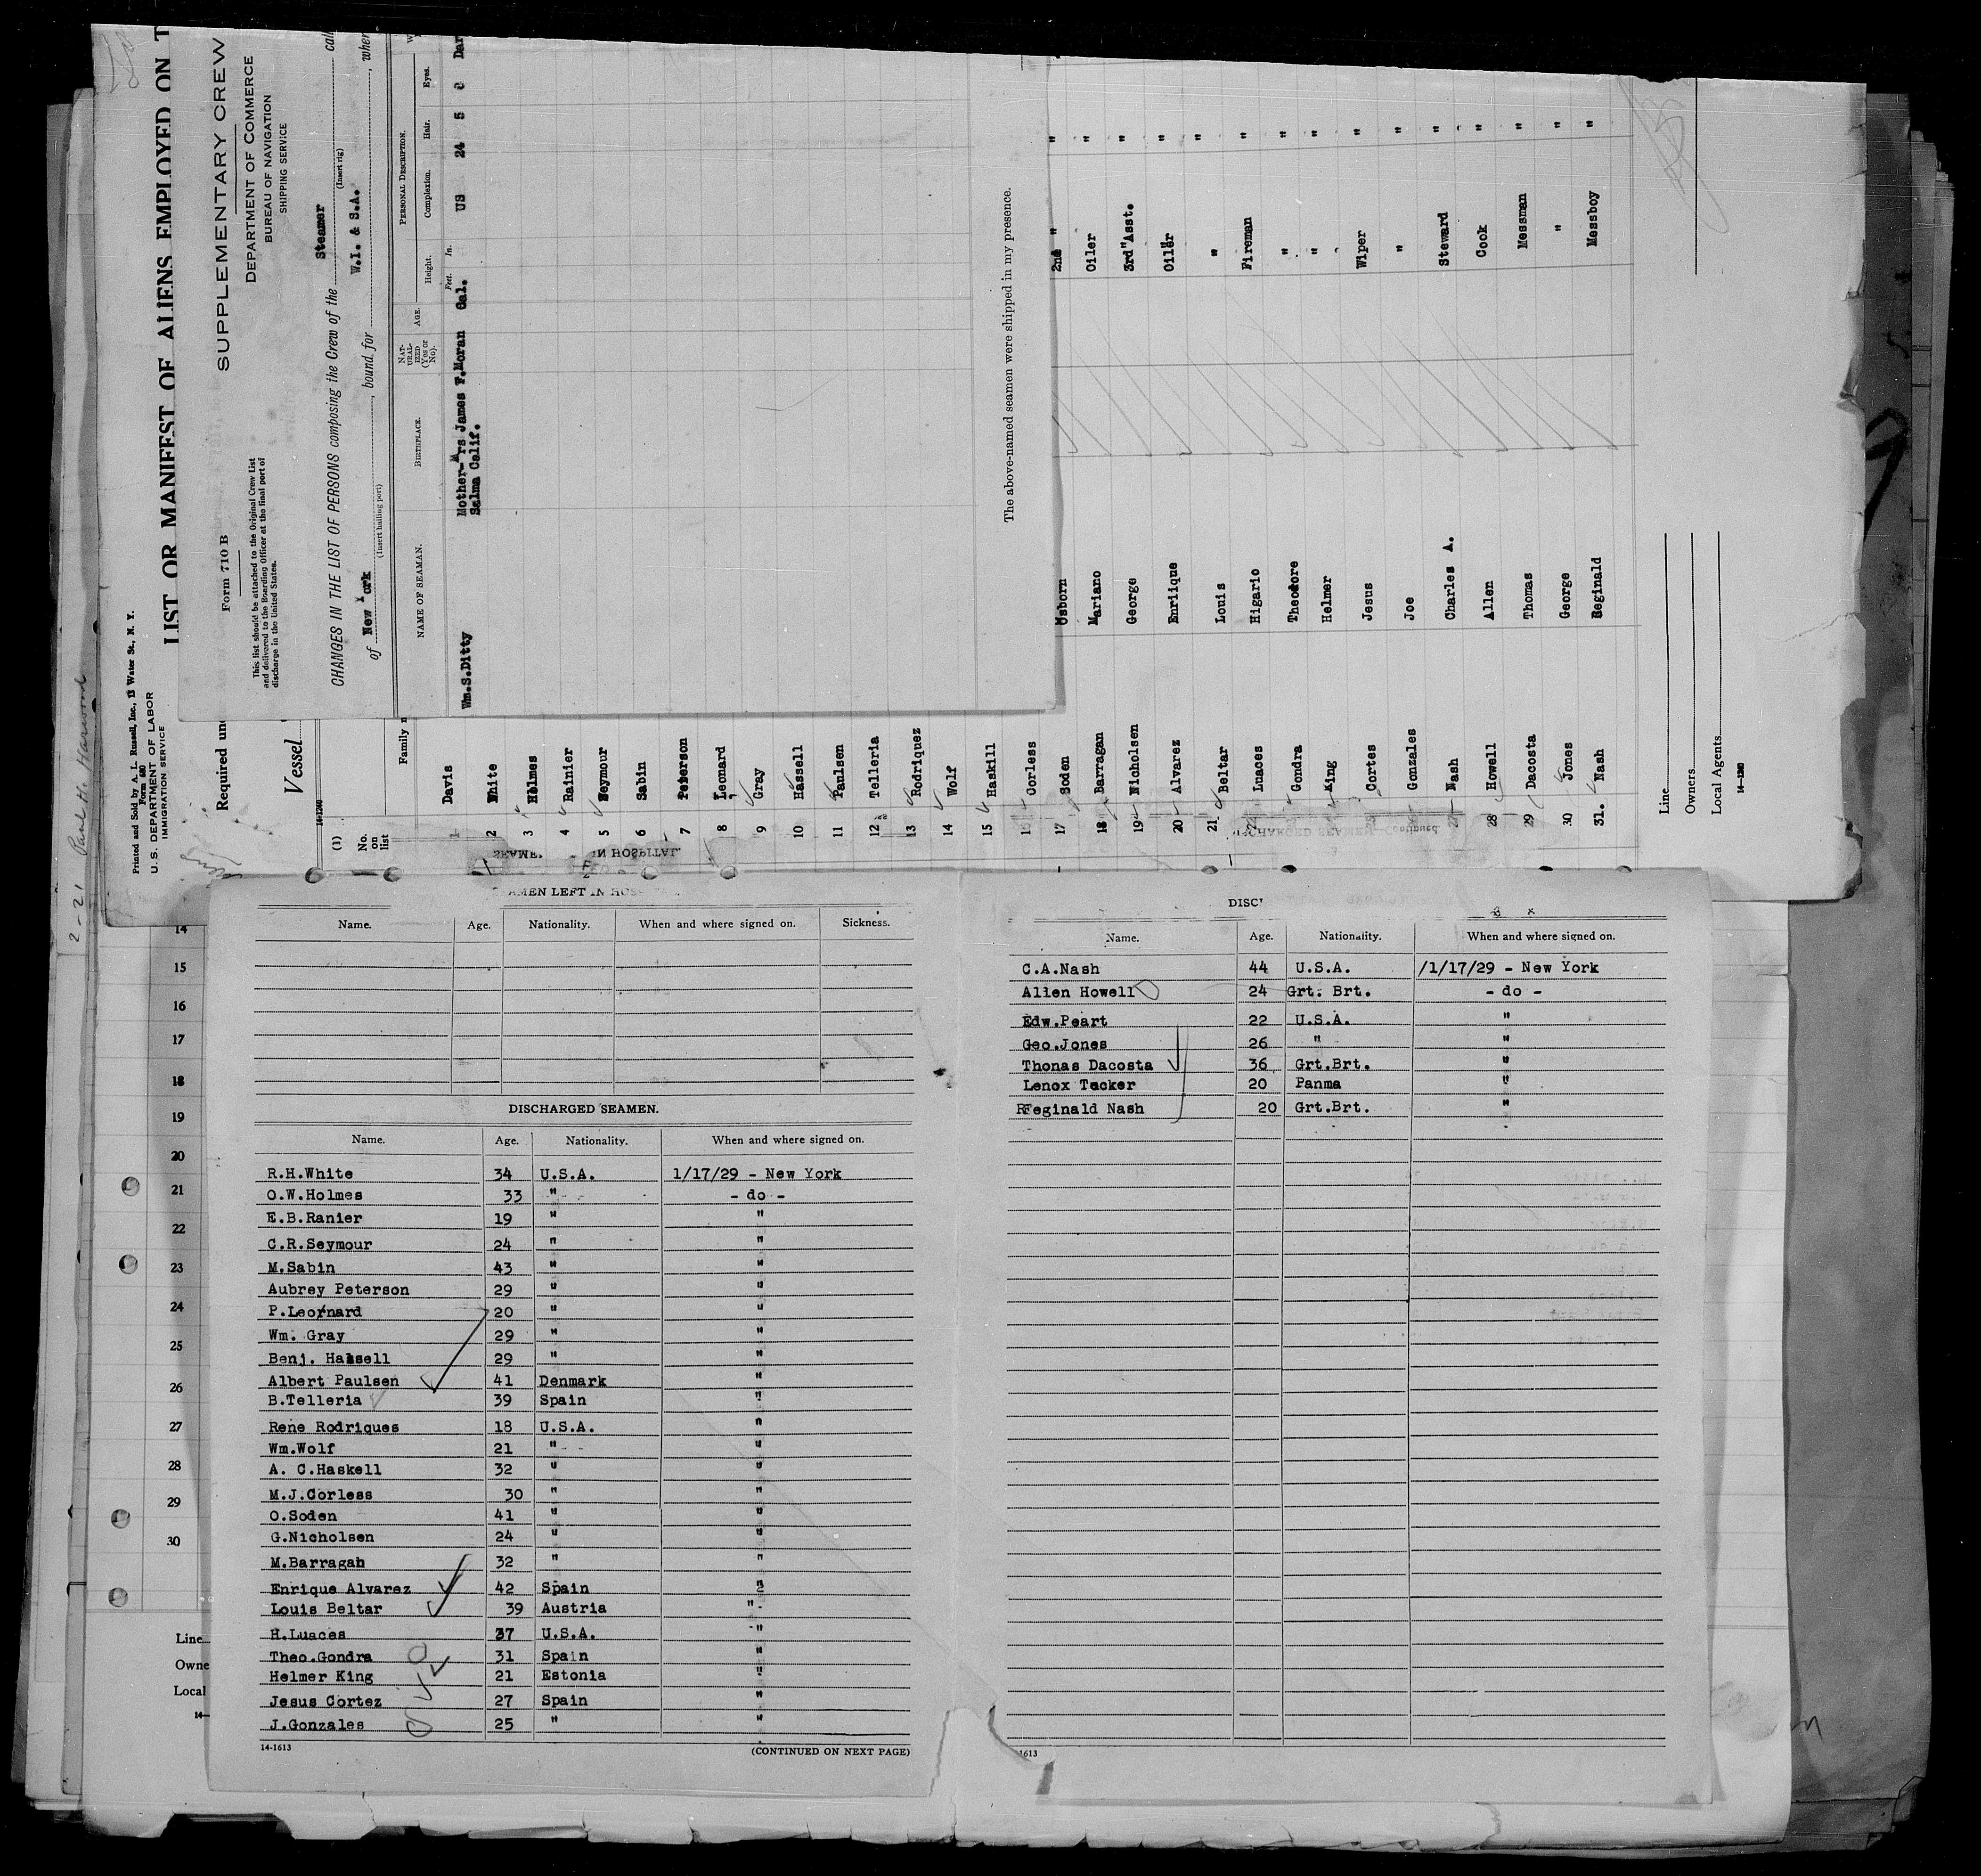 Printed and Sold by A. L. Russell, Inc., 13 Water St., N. Y.
Form 680
U. S. DEPARTMENT OF LABOR
IMMIGRATION SERVICE
LIST OR MANIFEST OF ALIENS EMPLOYED ON T
Required und
Vessel
14-1240
(1)
No. on list
Family n
1 Davis
2 White
3 Holmes
4 Rainier
5 Seymour
6 Sabin
7 Peterson
8 Leonard
9 Gray
10 Hassell
11 Paulsen
12 Telleria
13 Rodriquez
14 Wolf
15 Haskill
16 Corless
17 Soden Osborn 2nd "
18 Barragan Mariano Oiler "
19 Nicholsen George 3rd Asst. "
20 Alvarez Enriique Oiler "
21 Beltar Louis " "
22 Luaces Higario Fireman "
Gondra Theodore " "
King Helmer " "
Cortes Jesus Wiper "
Gonzales Joe " "
27 Nash Charles A. Steward "
28 Howell Allen Cook "
29 Dacosta Thomas Messman "
30 Jones George " "
31. Nash Reginald Messboy "
Line
Owners
Local Agents
14-1240
Form 710 B
SUPPLEMENTARY CREW
DEPARTMENT OF COMMERCE
BUREAU OF NAVIGATION
SHIPPING SERVICE
This list should be attached to the Original Crew List
and delivered to the Boarding Officer at the final port of
discharge in the United States.
CHANGES IN THE LIST OF PERSONS composing the Crew of the Steamer call
(Insert rig)
of New York, bound for W.I. & S.A., wher
(Insert hailing port)
NAME OF SEAMAN. BIRTHPLACE. NAT-URAL-IZED (Yes or No). AGE. PERSONAL DESCRIPTION.
Height. Complexion. Hair. Eyes.
Feet. In.
Wm.S.Ditty Mother-Mrs James F.Moran Cal. US 24 5 8 Dar
Salma Calif.
The above-named seamen were shipped in my presence.
2-21 Paul H. Harwood
SEAMEN LEFT IN HOS
Name. Age. Nationality. When and where signed on. Sickness.
DISCHARGED SEAMEN.
Name. Age. Nationality. When and where signed on.
R.H.White 34 U.S.A. 1/17/29 - New York
O.W.Holmes 33 " - do -
E.B.Ranier 19 " "
C.R.Seymour 24 " "
M.Sabin 43 " "
Aubrey Peterson 29 " "
P.Leonard 20 " "
Wm. Gray 29 " "
Benj. Hassell 29 " "
Albert Paulsen 41 Denmark "
B.Telleria 39 Spain "
Rene Rodriques 18 U.S.A. "
Wm.Wolf 21 " "
A. C.Haskell 32 " "
M.J.Corless 30 " "
O.Soden 41 " "
G.Nicholsen 24 " "
M.Barragan 32 " "
Enrique Alvarez 42 Spain "
Louis Beltar 39 Austria "
H.Luaces 37 U.S.A. "
Theo.Gondra 31 Spain "
Helmer King 21 Estonia "
Jesus Cortez 27 Spain "
J.Gonzales 25 " "
14-1613 (CONTINUED ON NEXT PAGE)
DISC
Name. Age. Nationality. When and where signed on.
C.A.Nash 44 U.S.A. /1/17/29 - New York
Allen Howell 24 Grt. Brt. - do -
Edw.Peart 22 U.S.A. "
Geo.Jones 26 " "
Thomas Dacosta 36 Grt.Brt. "
Lenox Tucker 20 Panma "
Reginald Nash 20 Grt.Brt. "
1613
14
15
16
17
18
19
20
21
22
23
24
25
26
27
28
29
30
Line
Owne
Local
14-